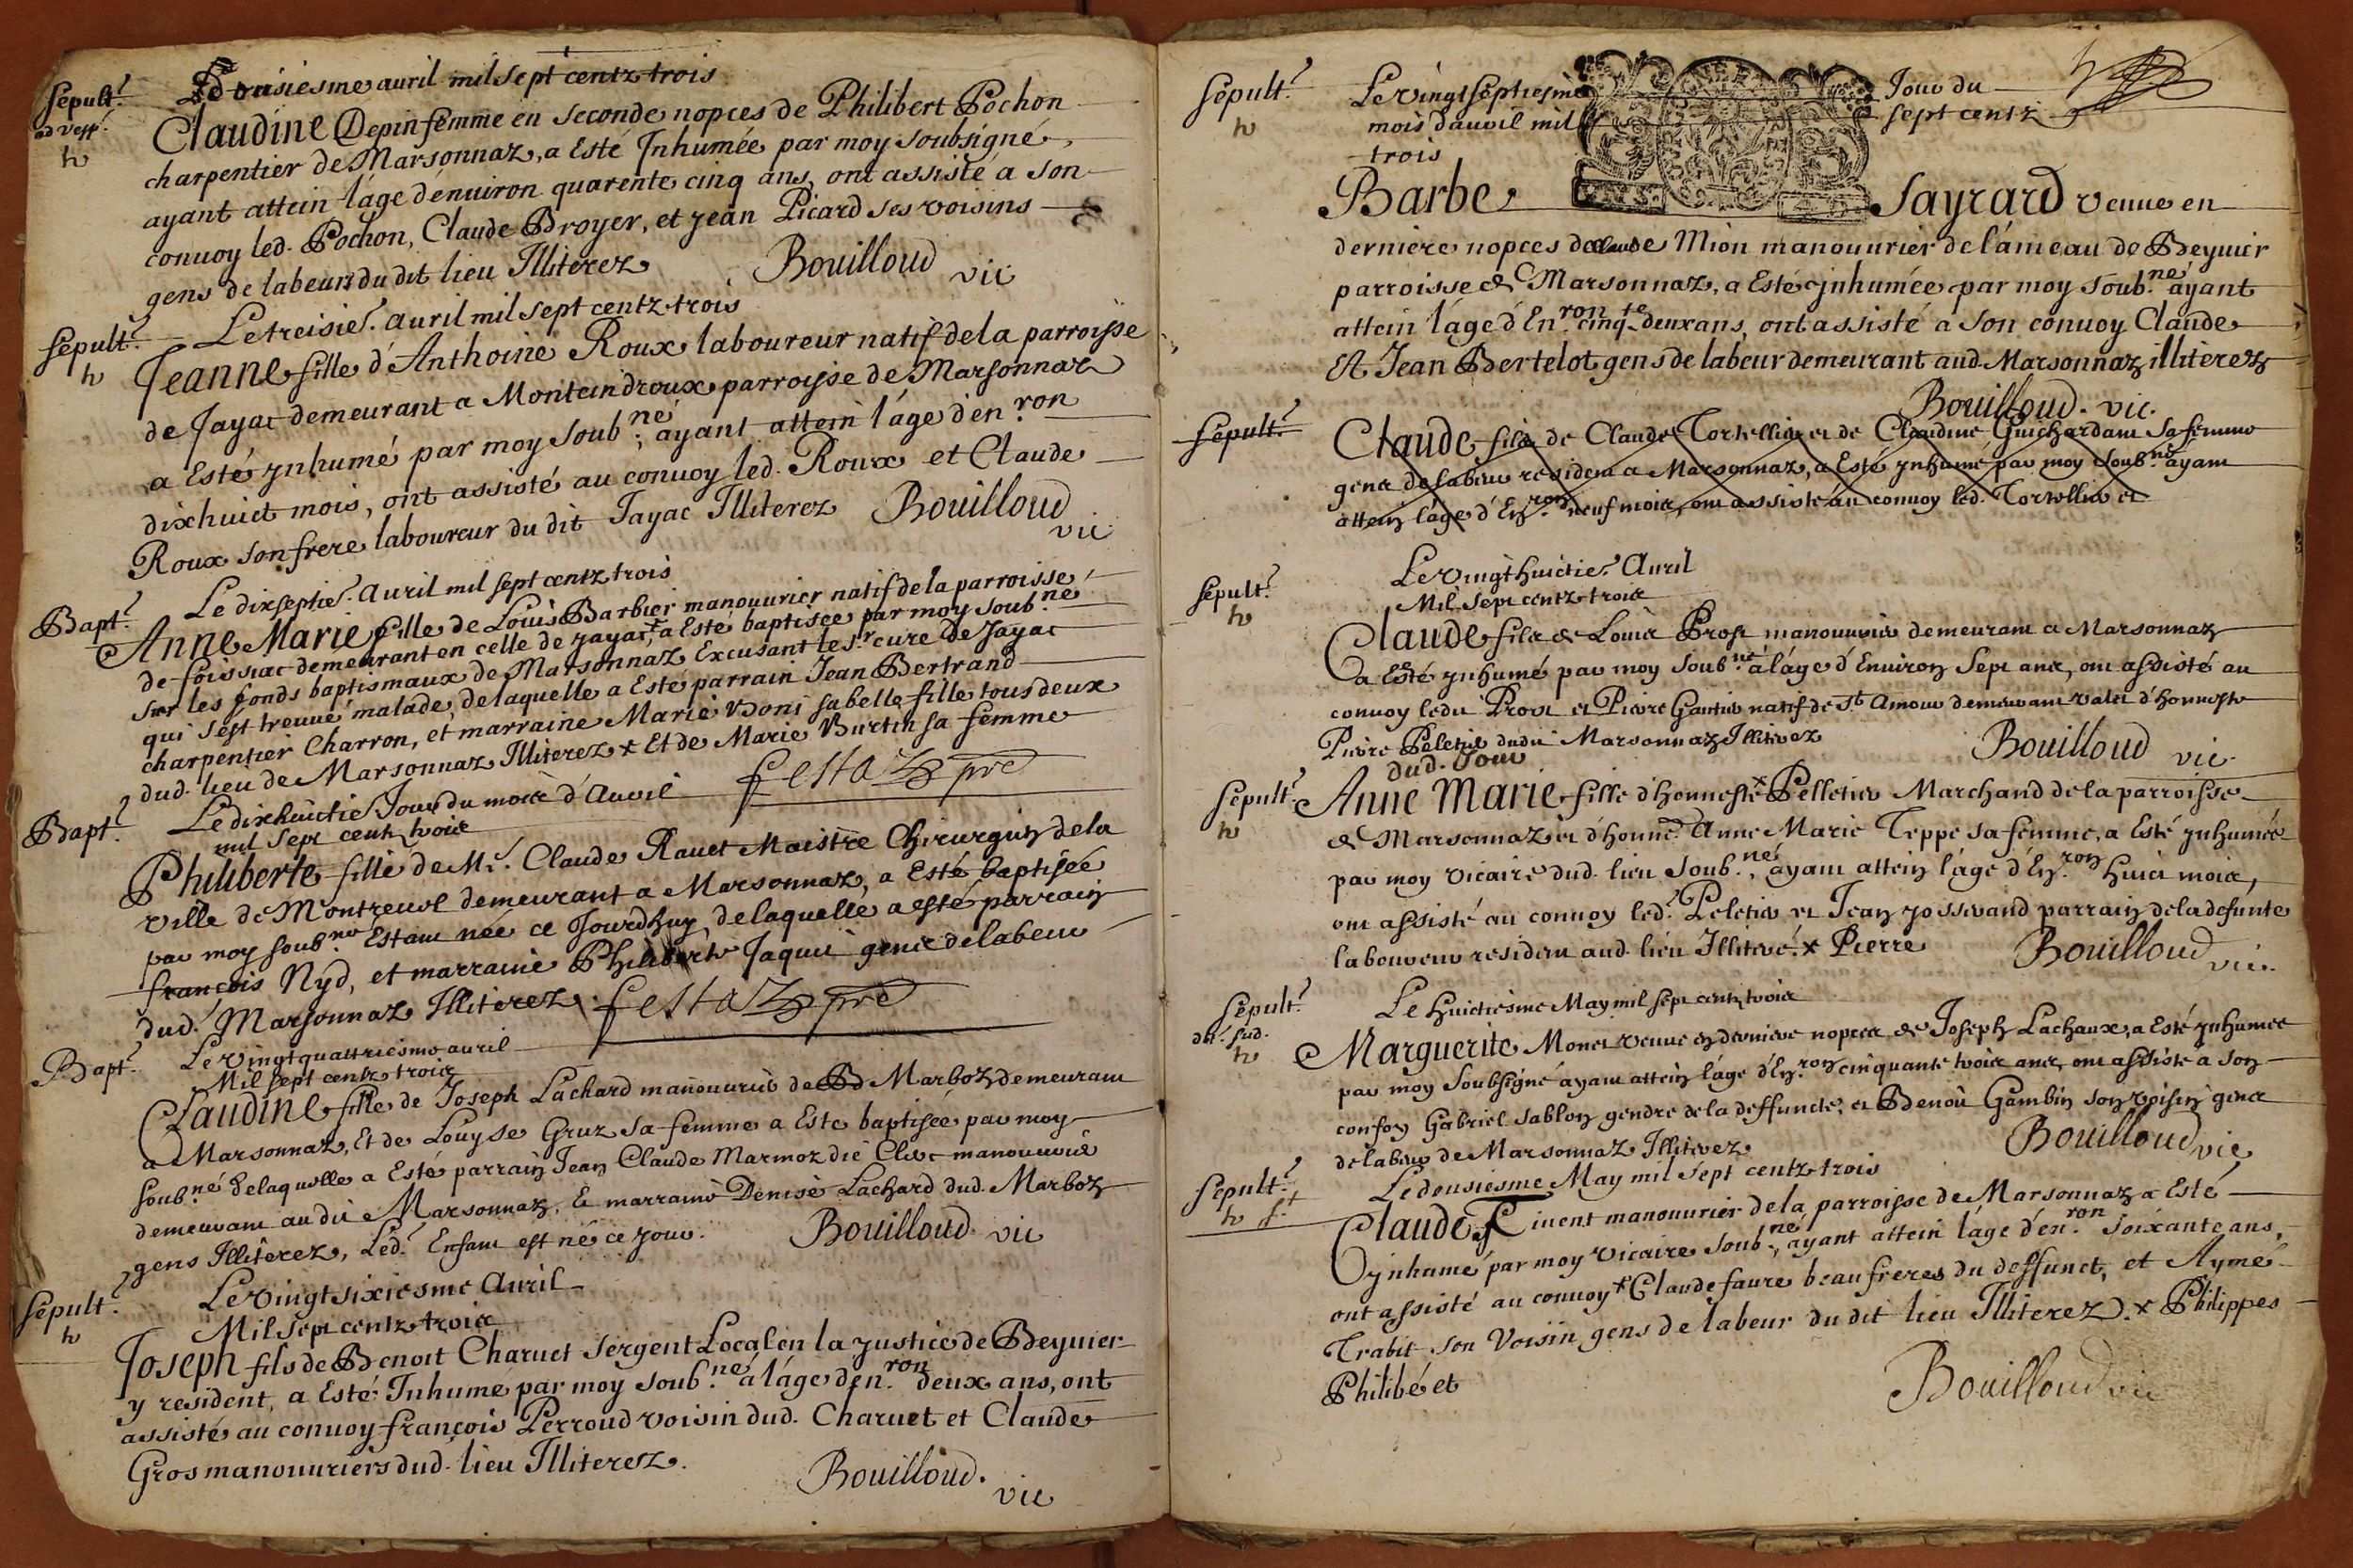 Sepult.
ad vesp.
h
Le dousiesme auril mil sept centz trois
Claudine Depin femme en seconde nopces de Philibert Pochon
charpentier de Marsonnaz, a Esté Jnhumée par moy soubsigné,
ayant attein láge d'enuiron quarente cinq ans, ont assisté a son
conuoy led. Pochon, Claude Broyer, et jean Picard ses voisins
gens de labeurs du dit lieu Illiterez
Bouilloud vic
Sepult.
h
Le treisie. auril mil sept centz trois
Jeanne fille d'Anthoine Roux laboureur natif de la parroisse
de Jayac demeurant a Monteindroux parroisse de Marsonnaz
a Esté ynhumé par moy soub.né ayant attein láge d'en.ron
dixhuict mois, ont assisté au conuoy led. Roux et Claude
Roux son frere laboureur du dit Jayac Illiterez Bouilloud
vic
Bapt.
Le dixseptie. auril mil sept centz trois
Anne Marie fille de Louis Barbier manouurier natif de la parroisse
de foissiac demeurant en celle de jayac + a Esté baptisée par moy soub.né
sur les fonds baptismaux de Marsonnaz Excusant le s.r cure de Jayac
qui s'est treuué malade, de laquelle a Esté parrain Jean Bertrand
charpentier Charron, et marraine Marie Vboni sa belle fille tous deux
dud. lieu de Marsonnaz Illiterez x Et de Marie Burtin sa femme
Bapt.
Le dixhuictie Jour du mois d'Auril
mil sept centz trois
festaz pre
Philiberte fille de M.e Claude Rauet Maistre Chirurgien de la
ville de Montreuel demeurant a Marsonnaz, a Esté baptisée
par moy soub.né Estant née ce Jourdhuy, de laquelle a esté parrain
francois Nyd, et marraine Philiberte Jaquii gens de labeur
dud. Marsonnaz Illiterez festaz pre
Bapt.
Le vingt quattriesme auril
Mil sept centz trois
Claudine fille de Joseph Lachard manouurié de Marboz demeurant
a Marsonnaz, Et de Louyse Gruz sa femme a Esté baptisée par moy
soub.né de laquelle a Esté parrain Jean Claude Marmoz dit Clerc manouurié
demeurant au dit Marsonnaz, & marraine Denise Lachard dud. Marboz
gens Illiterez, Led. Enfant est né ce jour. Bouilloud vic
Sepult.
h
Le vingt sixiesme Auril
Mil sept centz trois
Joseph fils de Benoit Charuet sergent Local en la justice de Beyuier
y resident, a Esté Jnhumé par moy soub.né á láge d'en.ron deux ans, ont
assisté au conuoy françois Perroud voisin dud. Charuet et Claude
Gros manouuriers dud. lieu Illiterez.
Bouilloud.
vic
Sepult.
h
Le vingt septiesme Jour du
mois dauril mil sept centz
trois
Barbe Sayrard veuue en
derniere nopces de Claude Mion manouurier de l'ámeau de Beyuier
parroisse de Marsonnaz, a Esté jnhumée par moy soub.né ayant
attein láge d'En.ron cinq.te deux ans, ont assisté a son conuoy Claude
Et Jean Bertelot gens de labeur demeurant aud. Marsonnaz illiterez
Bouilloud. vic.
Sepult.
Claude fils de Claude Tortellier et de Claudine Guichardant sa femme
gens de labeur resident a Marsonnaz, a Esté ynhumé par moy soub.né ayant
attein láge d'En.ron neuf mois, ont assisté au conuoy led. Tortellier et
Sepult.
h
Le vingt huictie. Auril
Mil sept centz trois
Claude fils de Louis Prost manouurier demeurant a Marsonnaz
a Esté ynhumé par moy soub.né á láge d'Enuiron sept ans, ont assisté au
conuoy ledit Prost et Pierre Gautier natif de St. Amour demeurant valet d'honneste
Pierre Peletier dudit Marsonnaz Illiterez Bouilloud vic.
Sepult.
h
dud. Jour
Anne Marie fille d'honneste x Pelletier Marchand de la parroisse
de Marsonnaz et d'honne. Anne Marie Teppe sa femme, a Esté ynhumée
par moy vicaire dud. lieu soub.né, ayant attein láge d'En.ron huict mois,
ont assisté au conuoy led. Peletier et Jean Josserand parrain de la defunte
laboureur resident aud. lieu Illiteré. x Pierre Bouilloud vic.
Sepult.
h
Le huictiesme May mil sept centz trois
Marguerite Monet veuue en derniere nopces de Joseph Lachaux, a Esté ynhumée
par moy soubsigné ayant attein láge d'En.ron cinquante trois ans, ont assisté a son
confoy Gabriel Sablon gendre de la deffuncte, et Benoit Gambin son voisin gens
de labeur de Marsonnaz Illiterez Bouilloud vic
Sepult.
h
Le dousiesme May mil sept centz trois
Claude Liuent manouurier de la parroisse de Marsonnaz a Esté
ynhumé par moy vicaire soub.né, ayant attein láge d'en.ron soixante ans,
ont assisté au conuoy x Claude faure beau freres du deffunct, et Aymé
Trabit son voisin gens de labeur du dit lieu Illiterez. x Philippes
Philibé et
Bouilloud vic